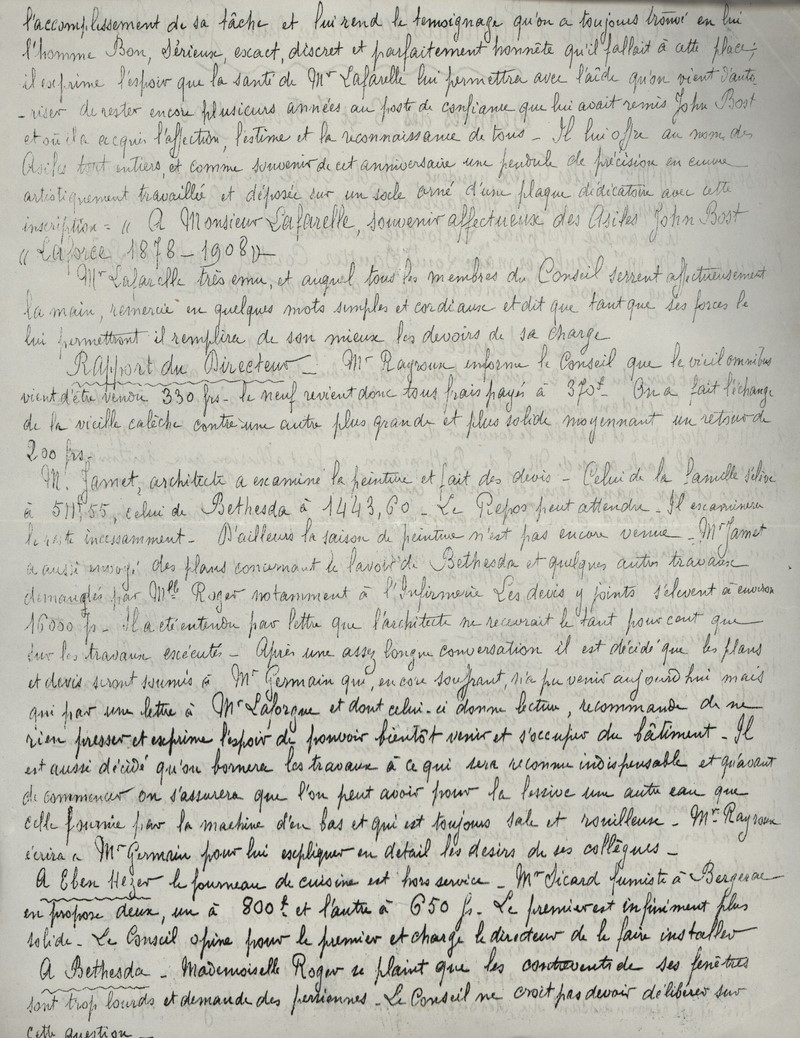 l'accomplissement de sa tâche et lui rend le temoignage qu'on a toujours trouvé en lui
l'homme Bon, Sérieux, escact, discret et parfaitement honnête qu'il fallait à cette place;
il exprime l'espoir que la santé de Mr Lafarelle lui permettra avec l'aide qu'on vient d'auto
-riser de rester encore plusieurs années au poste de confiance que lui avait remis John Bost
et où il a acquis l'affection, l'estime et la reconnaissance de tous - Il lui offre au nom des
Asiles tout entiers, et comme souvenir de cet anniversaire une pendule de précision en cuivre
artistiquement travaillé et déposée sur un socle orné d'une plaque dédicatoire avec cette
inscription = " A Monsieur Lafarelle, souvenir affectueux des Asiles John Bost
" Laforce 1878 - 1908 " -
Mr Lafarelle très emu, et auquel tous les membres du Conseil serrent affectueusement
la main, remercie en quelques mots simples et cordiaux et dit que tant que ses forces le
lui permettront il remplira de son mieux les devoirs de sa charge
Rapport du Directeur - Mr Rayroux informe le Conseil que le vieil omnibus
vient d'être vendu 330 frs - le neuf revient donc tous frais payés à 370f - On a fait l'échange
de la vieille calèche contre une autre plus grande et plus solide moyennant un retour de
200 frs -
Mr Jamet, architecte a examiné la peinture et fait des devis - Celui de la famille s'élève
à 511f55, celui de Bethesda à 1443,60 - Le Repos peut attendre - Il escaminera
le reste incessamment - D'ailleurs la saison de peinture n'est pas encore venue - Mr Jamet
a aussi envoyé des plans concernant le lavoir de Bethesda et quelques autres travaux
demandés par Mlle Roger notamment à l'Infirmerie Les devis y joints s'élèvent à environ
16000 fs - Il a été entendu par lettre que l'architecte ne recevrait le tant pour cent que
sur les travaux exécutés - Après une assez longue conversation il est décidé que les plans
et devis seront soumis à Mr Germain qui, encore souffrant, n'a pu venir aujourd'hui mais
qui par une lettre à Mr Laforgue et dont celui-ci donne lecture, recommande de ne
rien presser et exprime l'espoir de pouvoir bientôt venir et s'occuper du bâtiment - Il
est aussi décidé qu'on bornera les travaux à ce qui sera reconnu indispensable et qu'avant
de commencer on s'assurera que l'on peut avoir pour la lessive une autre eau que
celle fournie par la machine d'en bas et qui est toujours sale et rouilleuse - Mr Rayroux
écrira à Mr Germain pour lui escpliquer en detail les desirs de ses collègues -
A Eben Hezer le fourneau de cuisine est hors service - Mr Sicard fumiste à Bergerac
en propose deux, un à 800f et l'autre à 650 fs - Le premier est infiniment plus
solide - Le Conseil opine pour le premier et charge le directeur de le faire installer
A Bethesda - Mademoiselle Roger se plaint que les contrevents de ses fenêtres
sont trop lourds et demande des persiennes - Le Conseil ne croit pas devoir délibérer sur
cette question -